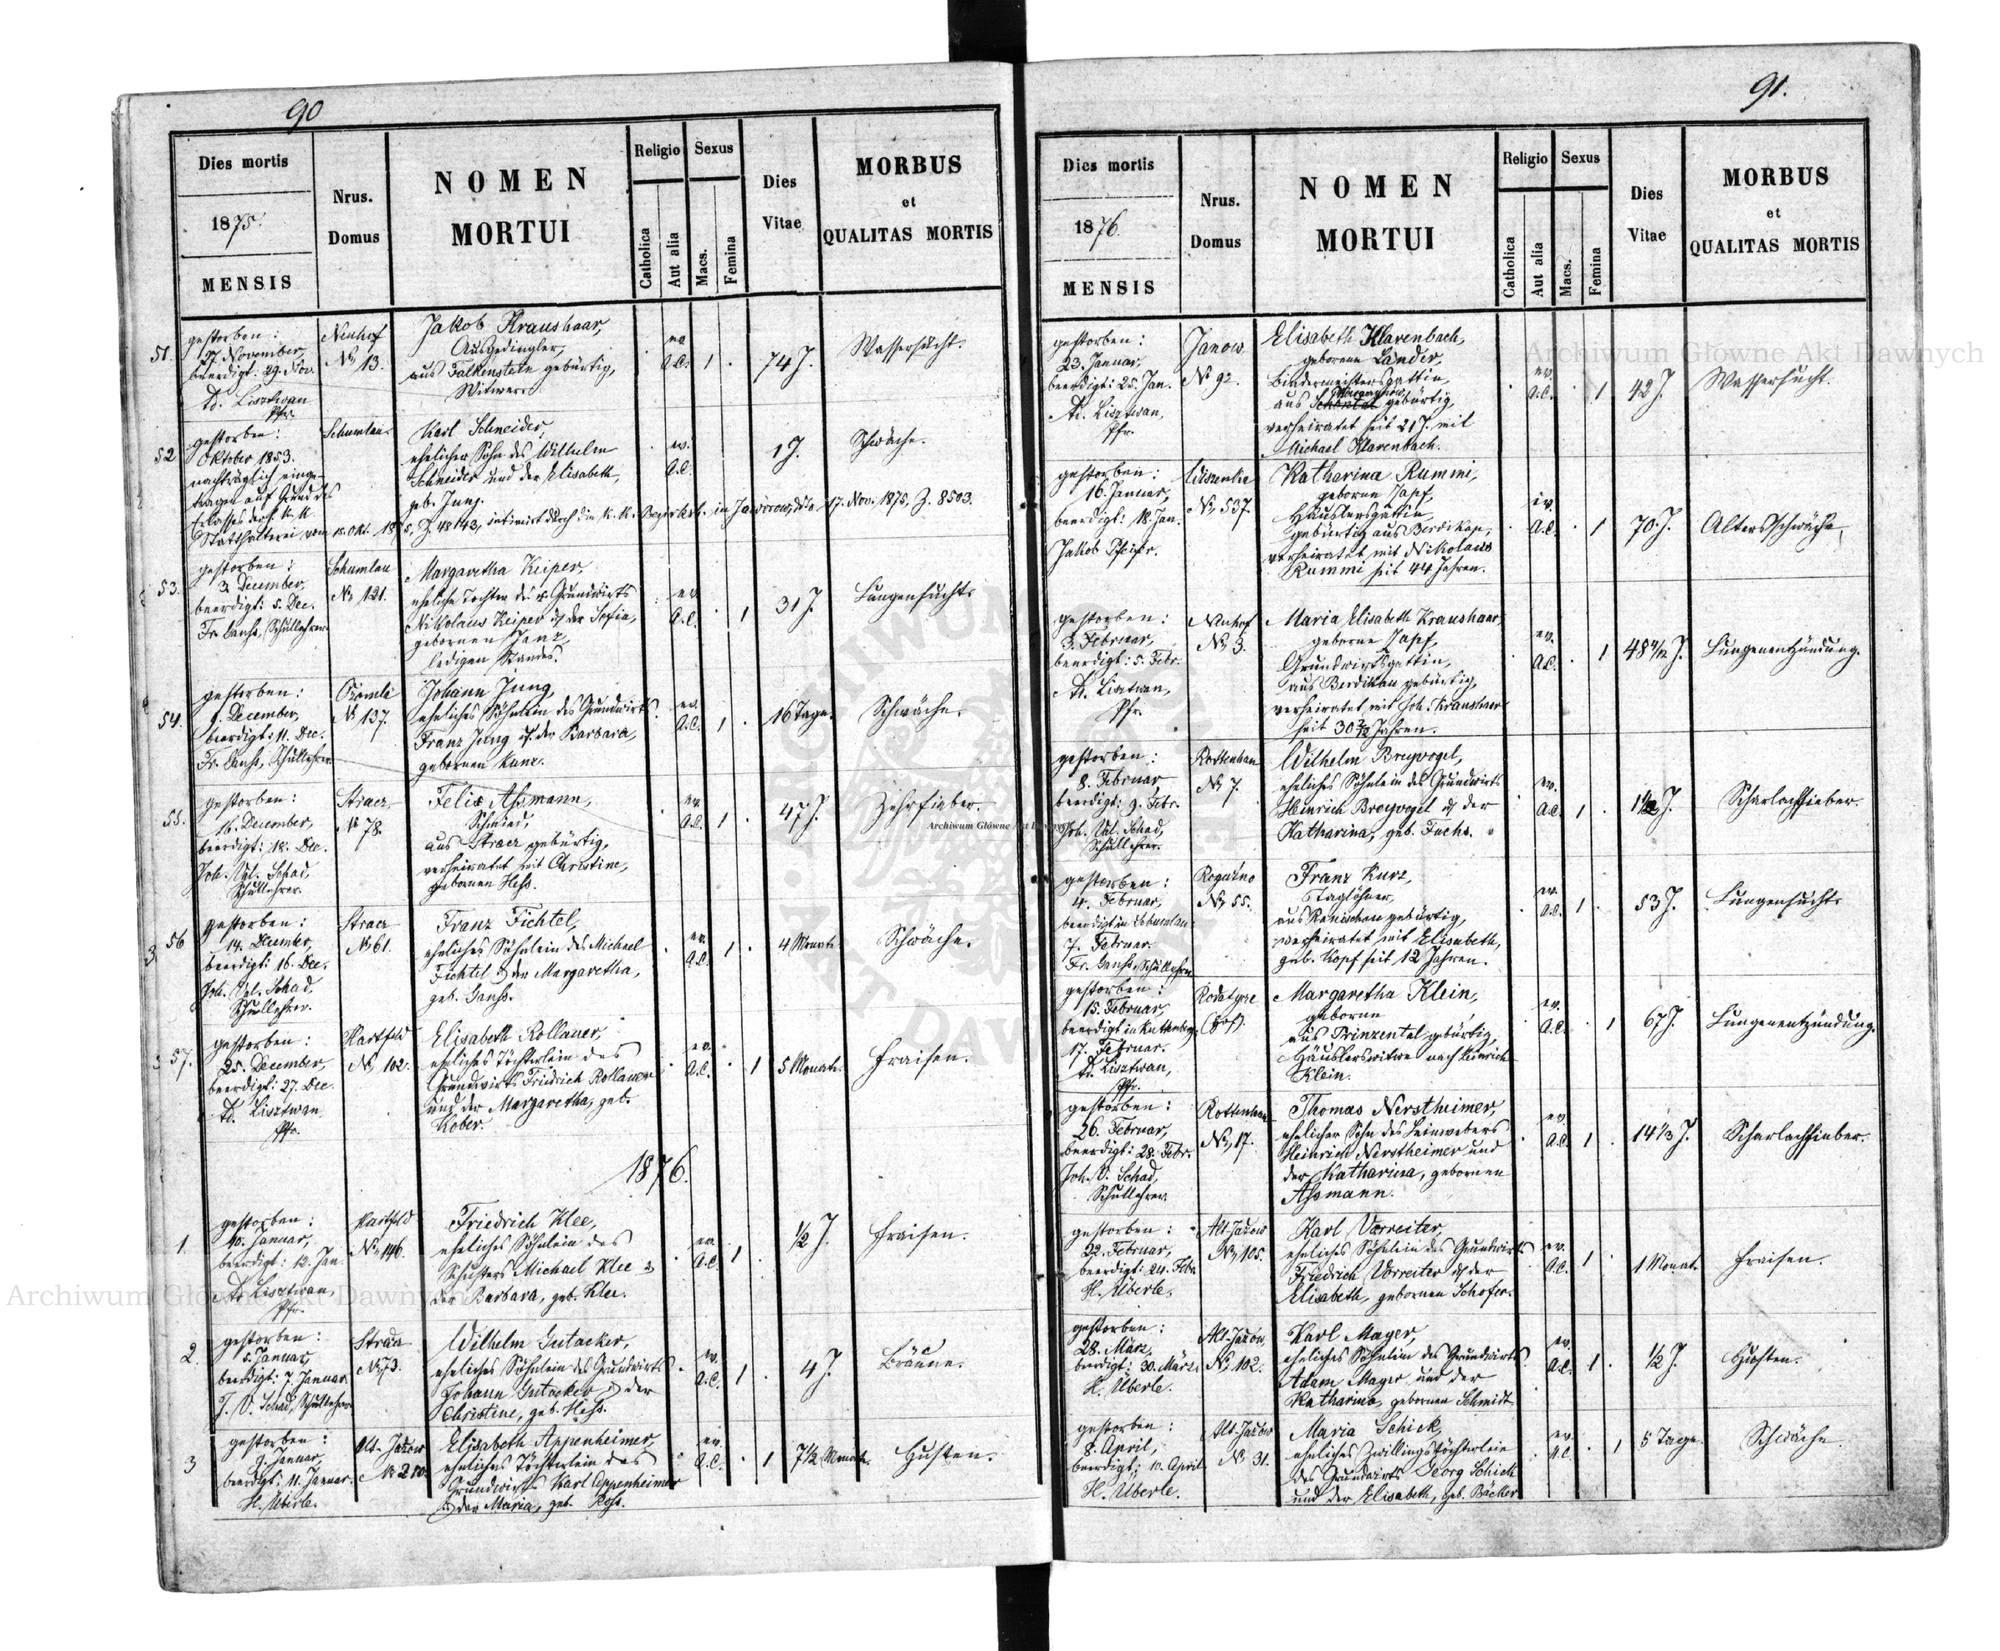 90
Dies mortis
1875.
MENSIS
Nrus.
Domus
NOMEN
MORTUI
Religio
Catholica
Aut alia
Sexus
Macs.
Femina
Dies
Vitae
MORBUS
et
QUALITAS MORTIS
51.
gestorben:
27. November,
beerdigt: 29. Nov.
Pfr.
Neuhof
No 13.
Jakob Kraushaar,
Ausgedingler,
aus Falkenstein gebürtig,
Witwer.
ev.
A.C.
1
74 J.
Wassersucht.
52
gestorben:
Oktober 1853.
nachträglich einge-
tragen auf Grund des
Erlasses der k. k.
Statthalterei vom
Schumlau.
Karl Schneider,
ehelicher Sohn des Wilhelm
Schneider und der Elisabeth,
geb. Jung.
intimirt durch die k. k. in Jaworow, dto 17. Nov. 1875, Z. 8503.
ev.
A.C.
1 J.
Schwäche.
53.
gestorben:
3. December,
beerdigt: 5. Dec.
Fr. Ganss, Schullehrer
Schumlau
No 121.
Margaretha Keiper,
eheliche Tochter des Grundwirts
Nikolaus Keiper & der Sofia,
gebornen Janz,
ledigen Standes.
ev.
A.C.
1
31 J.
Lungensucht.
54.
gestorben:
9. December,
beerdigt: 11. Dec.
Fr. Ganss, Schullehrer
No 137.
Johann Jung,
eheliches Söhnlein des Grundwirts
Franz Jung & der Barbara,
gebornen Kunz.
ev.
A.C.
1
16 Tage.
Schwäche.
55.
gestorben:
16. December,
beerdigt: 18. Dec.
Joh. Val. Schad,
Schullehrer.
No 78.
Felix Assmann,
Schmied,
gebürtig,
verheiratet mit Christine,
gebornen Hess.
ev.
A.C.
1
47 J.
Zehrfieber.
56
gestorben:
14. December,
beerdigt: 16. Dec.
Joh. Val. Schad,
Schullehrer.
No 61.
Franz Fichtel,
eheliches Söhnlein des Michael
Fichtel & der Margaretha,
geb. Ganss.
ev.
A.C.
1
4 Monate
Schwäche.
57.
gestorben:
25. December,
beerdigt: 27. Dec.
Pfr.
Hartfeld
No 102.
Elisabeth Rollauer,
eheliches Töchterlein des
Grundwirts Friedrich Rollauer
und der Margaretha, geb.
Kober.
ev.
A.C.
1
5 Monate.
Fraisen.
1876.
1.
gestorben:
10. Januar,
beerdigt: 12. Jan.
Pfr.
Hartfeld
No 146.
Friedrich Klee,
eheliches Söhnlein des
Schusters Michael Klee &
der Barbara, geb. Klee.
ev.
A.C.
1
1/2 J.
Fraisen.
2.
gestorben:
5. Januar,
beerdigt: 7. Januar.
J. V. Schad, Schullehrer
No 73.
Wilhelm Gutacker,
eheliches Söhnlein des Grundwirts
Johann Gutacker & der
Christine, geb. Hess.
ev.
A.C.
1
4 J.
Bräune.
3
gestorben:
9. Januar,
beerdigt: 11. Januar.
H. Überle.
Alt-Jazow
Elisabeth Appenheimer,
eheliches Töchterlein des
Grundwirts Karl Appenheimer
& der Maria, geb.
ev.
A.C.
1
7 1/2 Monate.
Husten.
91.
Dies mortis
1876.
MENSIS
Nrus.
Domus
NOMEN
MORTUI
Religio
Catholica
Aut alia
Sexus
Macs.
Femina
Dies
Vitae
MORBUS
et
QUALITAS MORTIS
gestorben:
23. Januar,
beerdigt: 25. Jan.
Pfr.
Janow
No 92.
Elisabeth Klarenbach,
geborene Lander,
Bindermeistersgattin,
aus gebürtig,
verheiratet seit 21 J. mit
Michael Klarenbach.
ev.
A.C.
1
42 J.
Wassersucht.
gestorben:
16. Januar,
beerdigt: 18. Jan.
Jakob Pfeifer.
Wiszenka
No 537.
Katharina Rummi,
geborne Zapf,
Häuslersgattin
gebürtig aus Berdikau,
verheiratet mit Nikolaus
Rummi seit 44 Jahren.
ev.
A.C.
1
70 J.
Altersschwäche,
gestorben:
3. Februar,
beerdigt: 5. Febr.
Pfr.
Neuhof
No 3.
Maria Elisabeth Kraushaar,
geborne Zapf,
Grundwirtsgattin,
aus Berdikau gebürtig,
verheiratet mit Joh. Kraushaar
seit 30 Jahren.
ev.
A.C.
1
Lungenentzündung.
gestorben:
8. Februar,
beerdigt: 9. Febr.
Joh. Val. Schad,
Schullehrer.
Rottenhan
No 7.
Wilhelm Breyvogel,
eheliches Söhnlein des Grundwirts
Heinrich Breyvogel & der
Katharina, geb. Fuchs.
ev.
A.C.
1
Scharlachfieber.
gestorben:
4. Februar,
beerdigt in Schumlau:
7. Februar.
Fr. Ganss, Schullehrer
No 55.
Franz Kurz,
Taglöhner,
gebürtig,
verheiratet mit Elisabeth,
geb. Kopf seit 12 Jahren.
ev.
A.C.
1
53 J.
Lungensucht.
gestorben:
15. Februar,
17. Februar.
Pfr.
(Hof).
Margaretha Klein,
geborne
aus Prinzental gebürtig,
Häuslerswitwe nach Heinrich
Klein.
ev.
A.C.
1
67 J.
Lungenentzündung.
gestorben:
26. Februar,
beerdigt: 28. Febr.
Joh. V. Schad,
Schullehrer
Rottenhan
No 17.
Thomas Nerstheimer,
ehelicher Sohn des Leinwebers
Heinrich Nerstheimer und
der Katharina, gebornen
Assmann.
ev.
A.C.
1
14 1/3 J.
Scharlachfieber.
gestorben:
22. Februar,
beerdigt: 24. Febr.
H. Überle.
Alt-Jazow
No 105.
Karl Vorreiter,
eheliches Söhnlein des Grundwirts
Friedrich Vorreiter & der
Elisabeth, gebornen Schofer.
ev.
A.C.
1
1 Monat.
Fraisen.
gestorben:
28. März,
beerdigt: 30. März.
H. Überle.
Alt-Jazow,
No 102.
Karl Mayer,
eheliches Söhnlein des Grundwirts
Adam Mayer und der
Katharina, gebornen Schmidt
ev.
A.C.
1
1/2 J.
Husten.
gestorben:
8. April,
beerdigt: 10. April
H. Überle.
Alt-Jazow
No 31.
Maria Schick,
eheliches Zwillingstöchterlein
des Grundwirts Georg Schick
und der Elisabeth, geb. Bäcker
ev.
A.C.
1
5 Tage.
Schwäche
Archiwum Główne Akt Dawnych
Archiwum Główne Akt Dawnych
Archiwum Główne Akt Dawnych